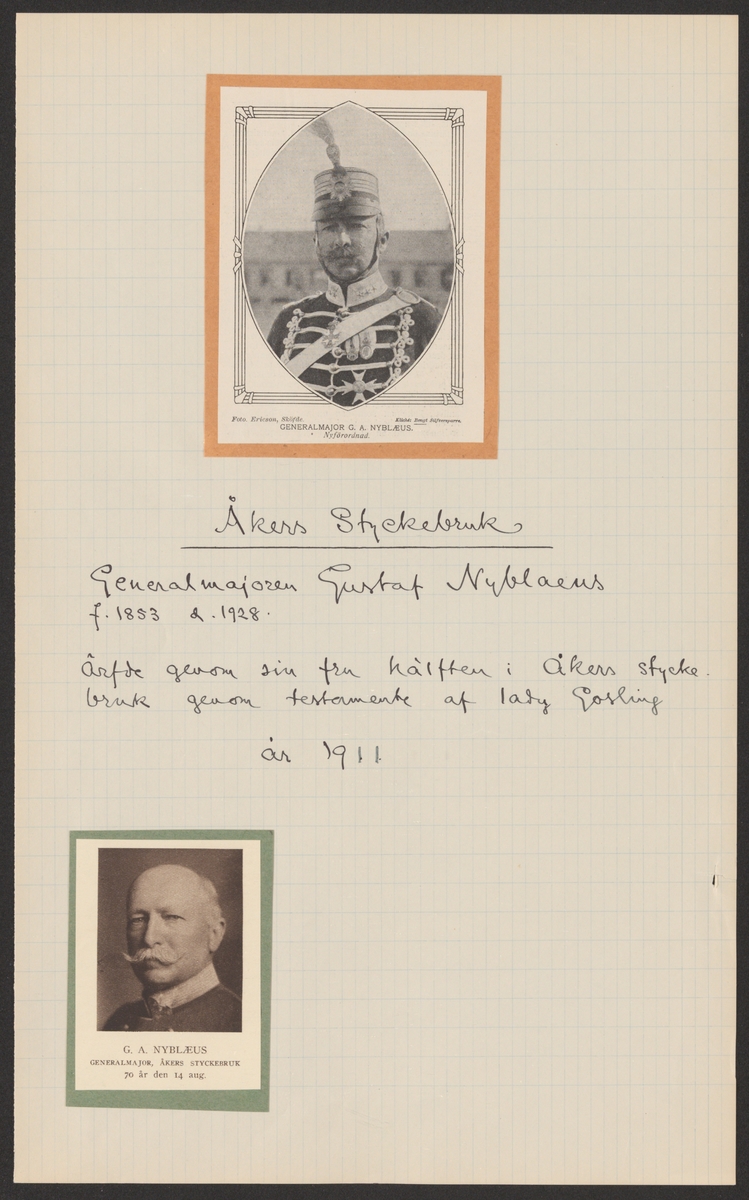 Foto. Ericson, Sköfde. Kliché: Bengt Silfversparre.
GENERALMAJOR G. A. NYBLÆUS.
Nyförordnad.
Åkers Styckebruk
Generalmajoren Gustaf Nyblaeus
f. 1853 d. 1928.
Ärfde genom sin fru hälften i Åkers stycke.
bruk genom testamente af lady Gosling
år 1911
G. A. NYBLÆUS
GENERALMAJOR, ÅKERS STYCKEBRUK
70 år den 14 aug.